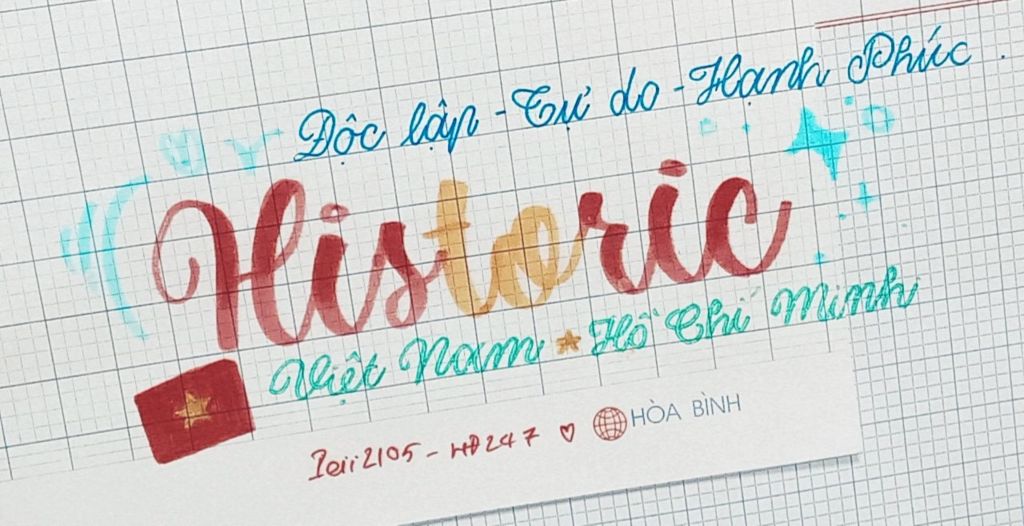 Độc lập - Tự do - Hạnh Phúc.
Historic
Việt Nam ★ Hồ Chí Minh
Ieii2105 - HĐ247 ♡ HÒA BÌNH